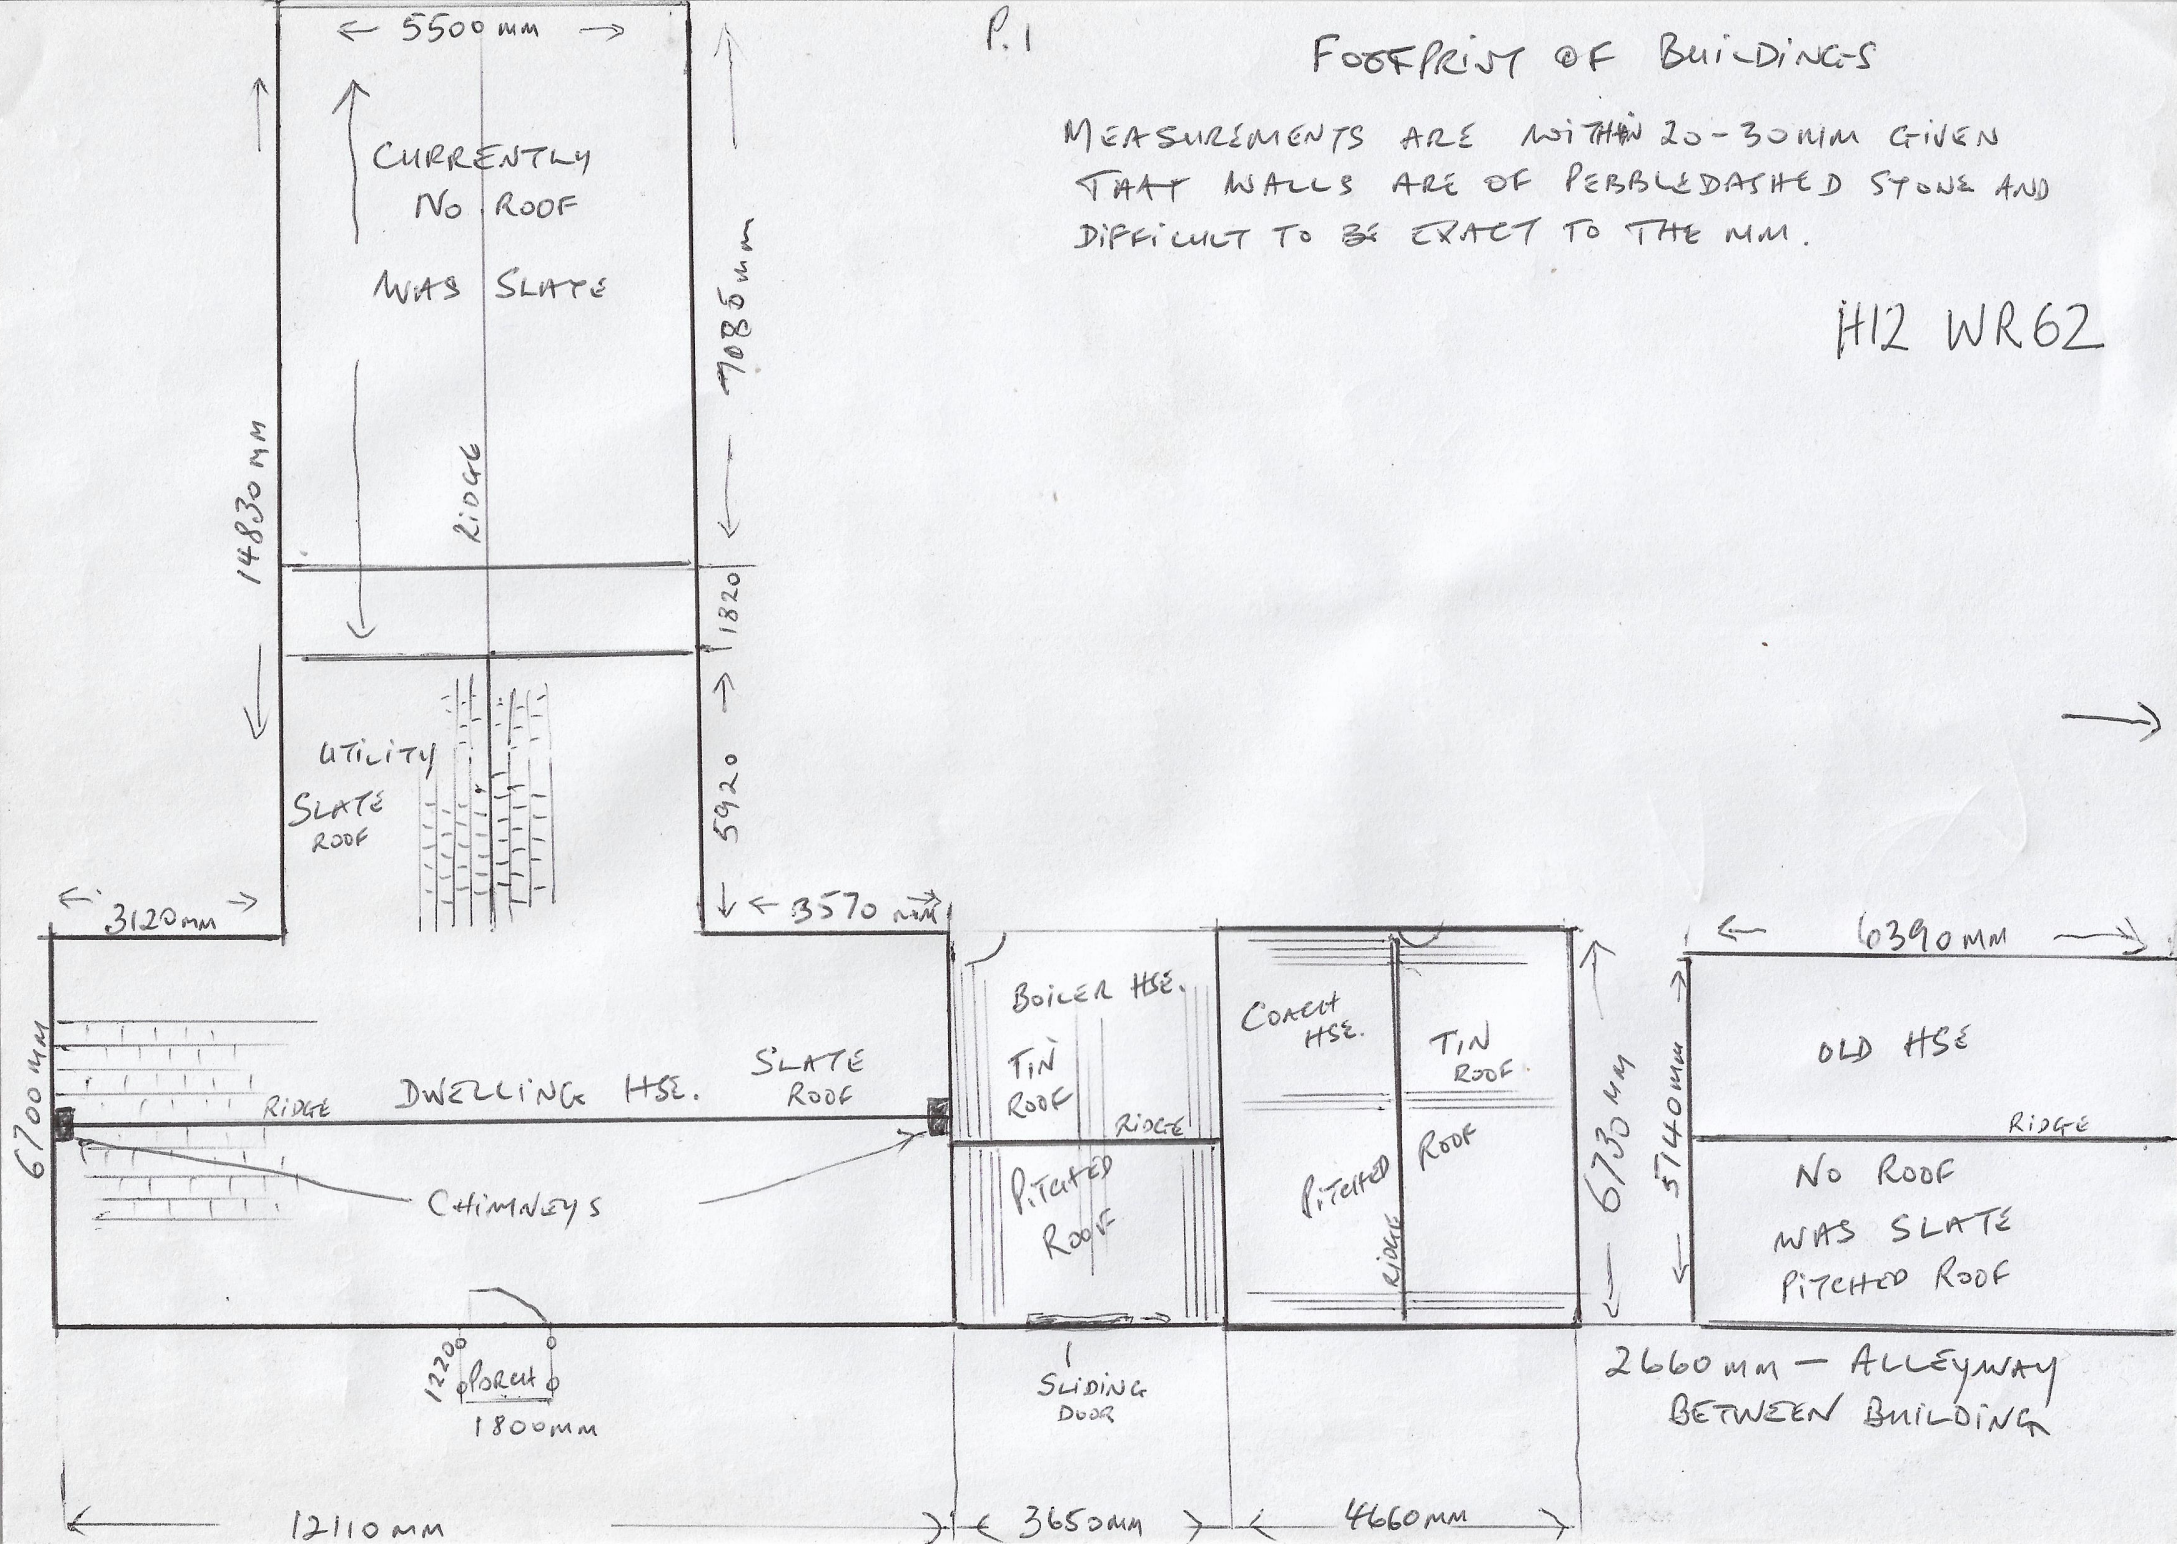 P.1
FOOTPRINT OF BUILDINGS
MEASUREMENTS ARE WITHIN 20-30MM GIVEN
THAT WALLS ARE OF PEBBLEDASHED STONE AND
DIFFICULT TO BE EXACT TO THE MM.
H12 WR62
5500mm
CURRENTLY
NO ROOF
WAS SLATE
RIDGE
14830mm
1820
5920
UTILITY
SLATE
ROOF
3120mm
3570mm
6700mm
DWELLING HSE.
SLATE
ROOF
RIDGE
CHIMNEYS
1220
PORCH
1800mm
BOILER HSE.
TIN
ROOF
RIDGE
PITCHED
ROOF
SLIDING
DOOR
COACH
HSE.
TIN
ROOF
PITCHED
ROOF
RIDGE
6730mm
5140mm
6390mm
OLD HSE
RIDGE
NO ROOF
WAS SLATE
PITCHED ROOF
2660mm - ALLEYWAY
BETWEEN BUILDING
12110mm
3650mm
4660mm